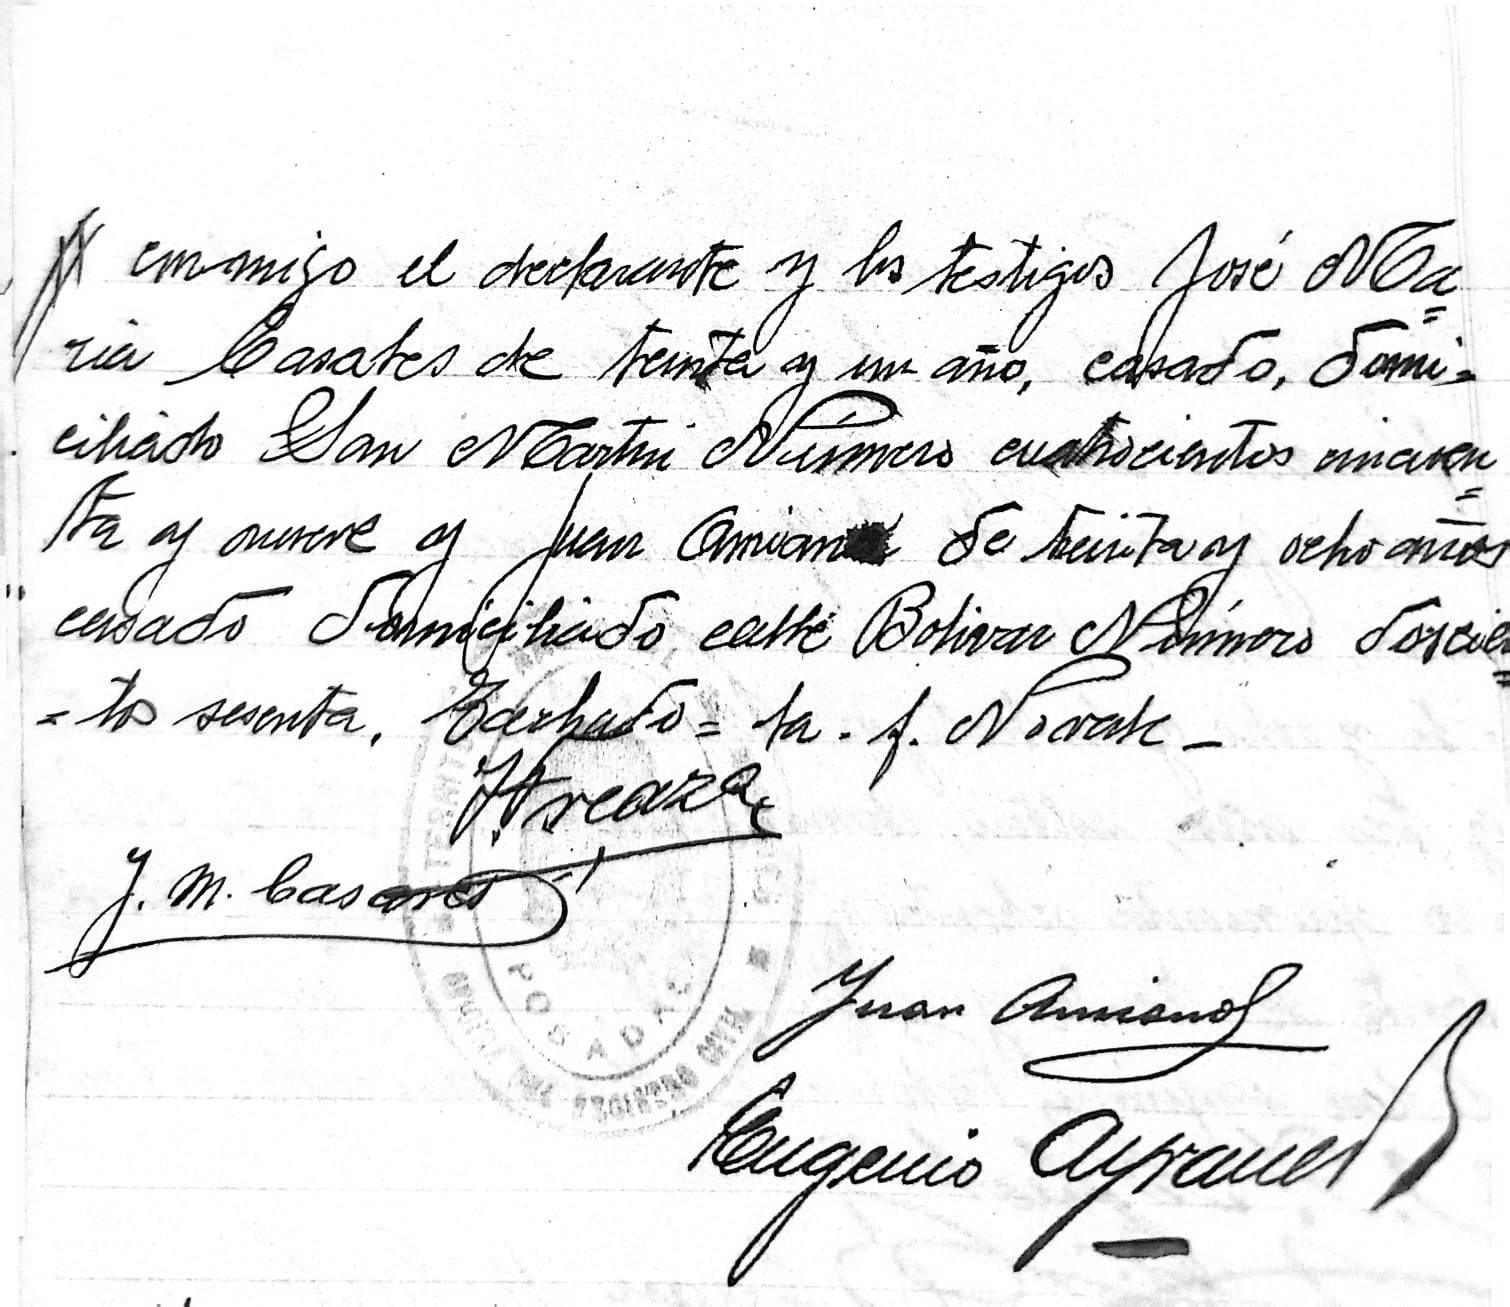 conmigo el declarante y los testigos José Ma=
ria Casares de treinta y un año, casado, domi=
ciliado San Martin Número cuatrocientos cincuen=
ta y nueve y Juan Amiano de treinta y ocho años
casado domiciliado calle Bolivar Número doscien=
=tos sesenta. Tachado= ta. f. No vale_
J. M. Casares
Juan Amiano
Eugenio
POSADAS
REGISTRO CIVIL